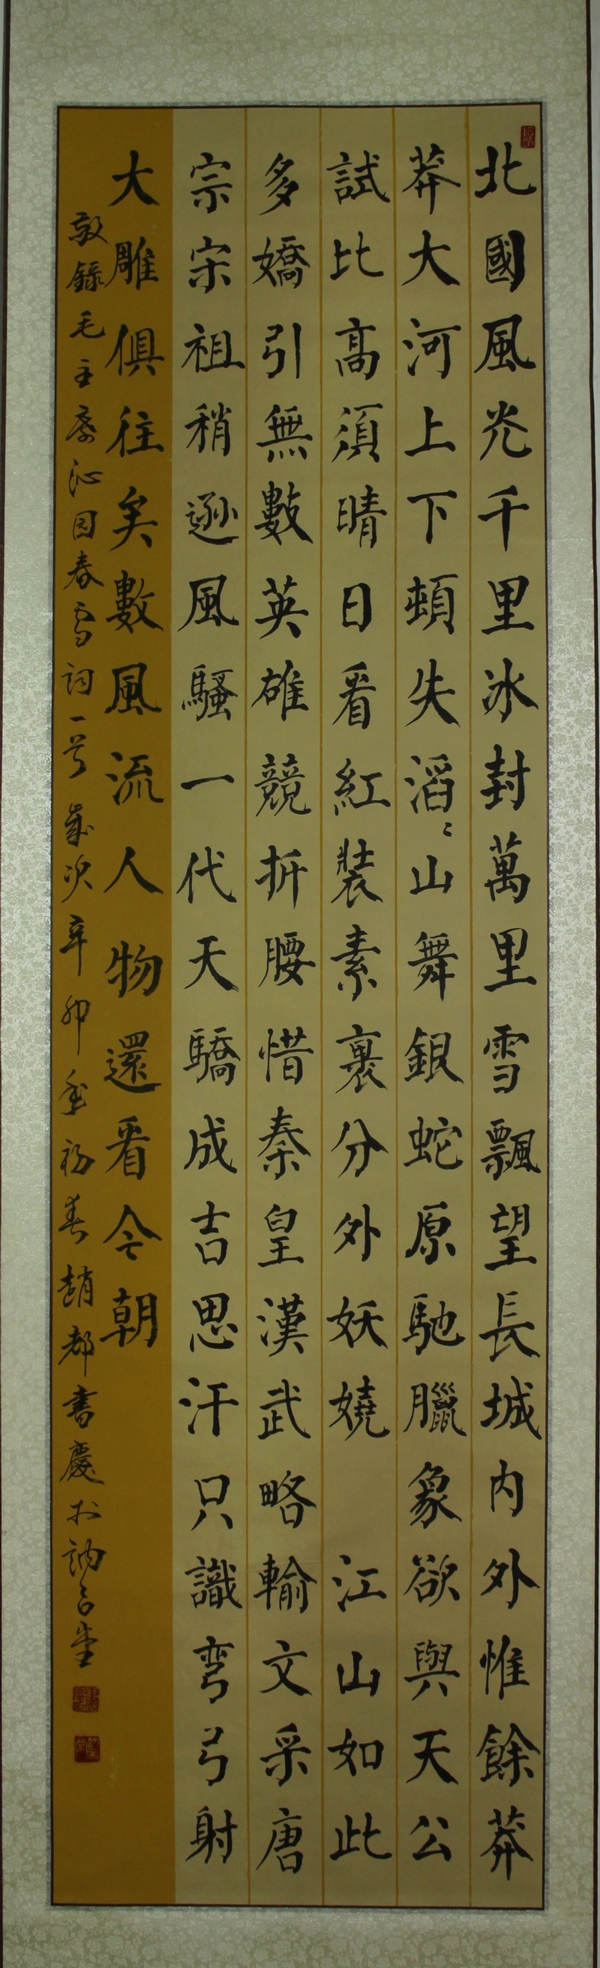 北國風光千里冰封萬里雪飄望長城内外惟餘莽
莽大河上下頓失滔〻山舞銀蛇原馳臘象欲與天公
試比高須晴日看紅裝素裹分外妖嬈 江山如此
多嬌引無數英雄競折腰惜秦皇漢武略輸文采唐
宗宋祖稍遜風騷一代天驕成吉思汗只識彎弓射
大雕俱往矣數風流人物還看今朝
敬錄毛主席沁园春雪词一首歲次辛卯年初春趙都書慶於訥言堂